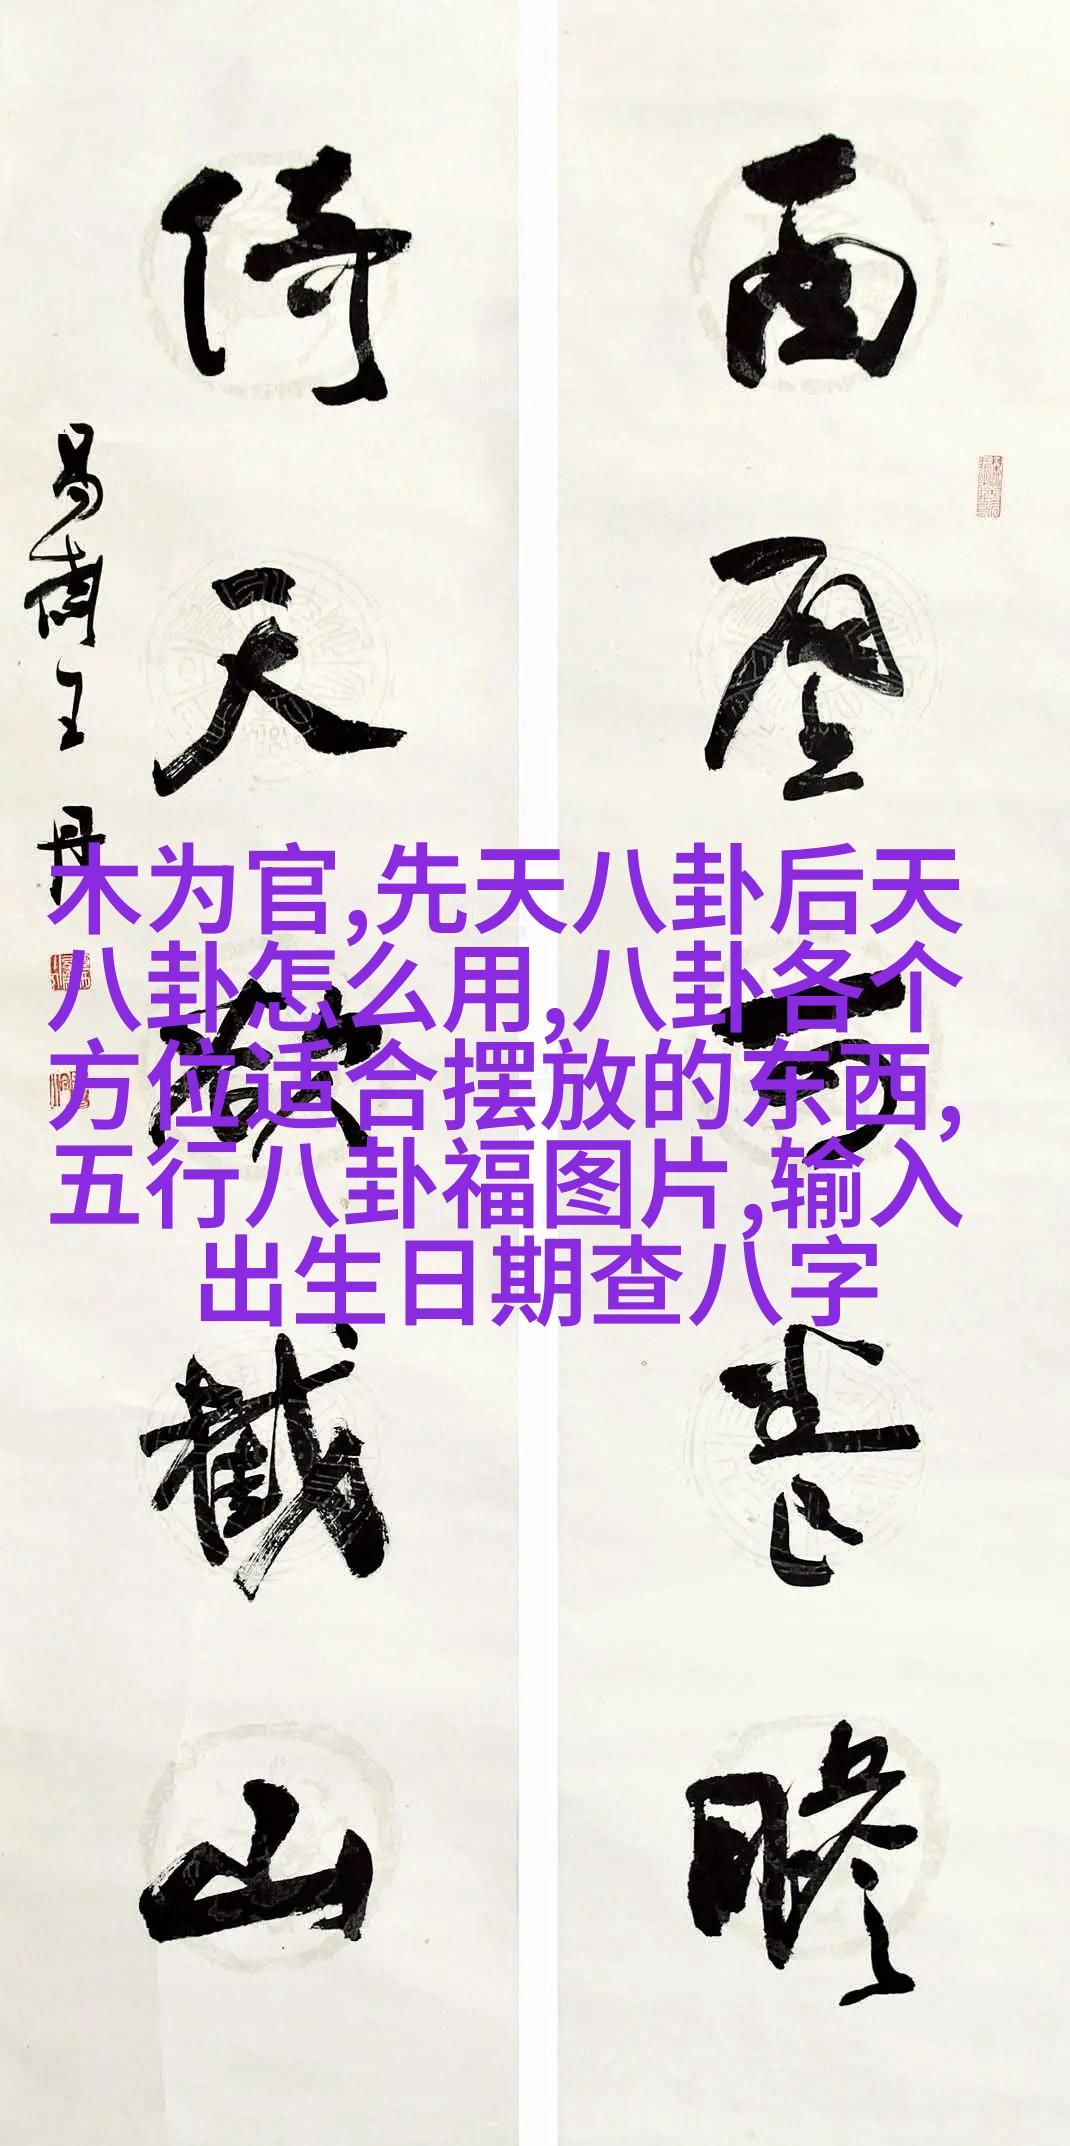 壁 瞻
倚天 截山
王丹
木为官,先天八卦后天
八卦怎么用,八卦各个
方位适合摆放的东西,
五行八卦福图片,输入
出生日期查八字